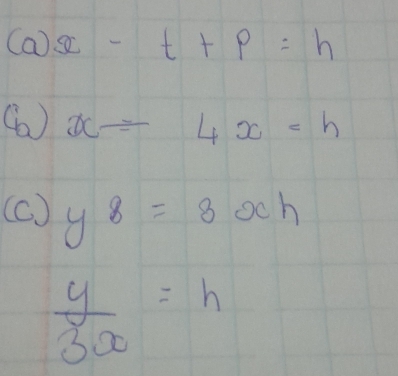 (a) x - t + p = h
(b) x = 4x = h
(c) y 8 = 3xh
y/3x = h